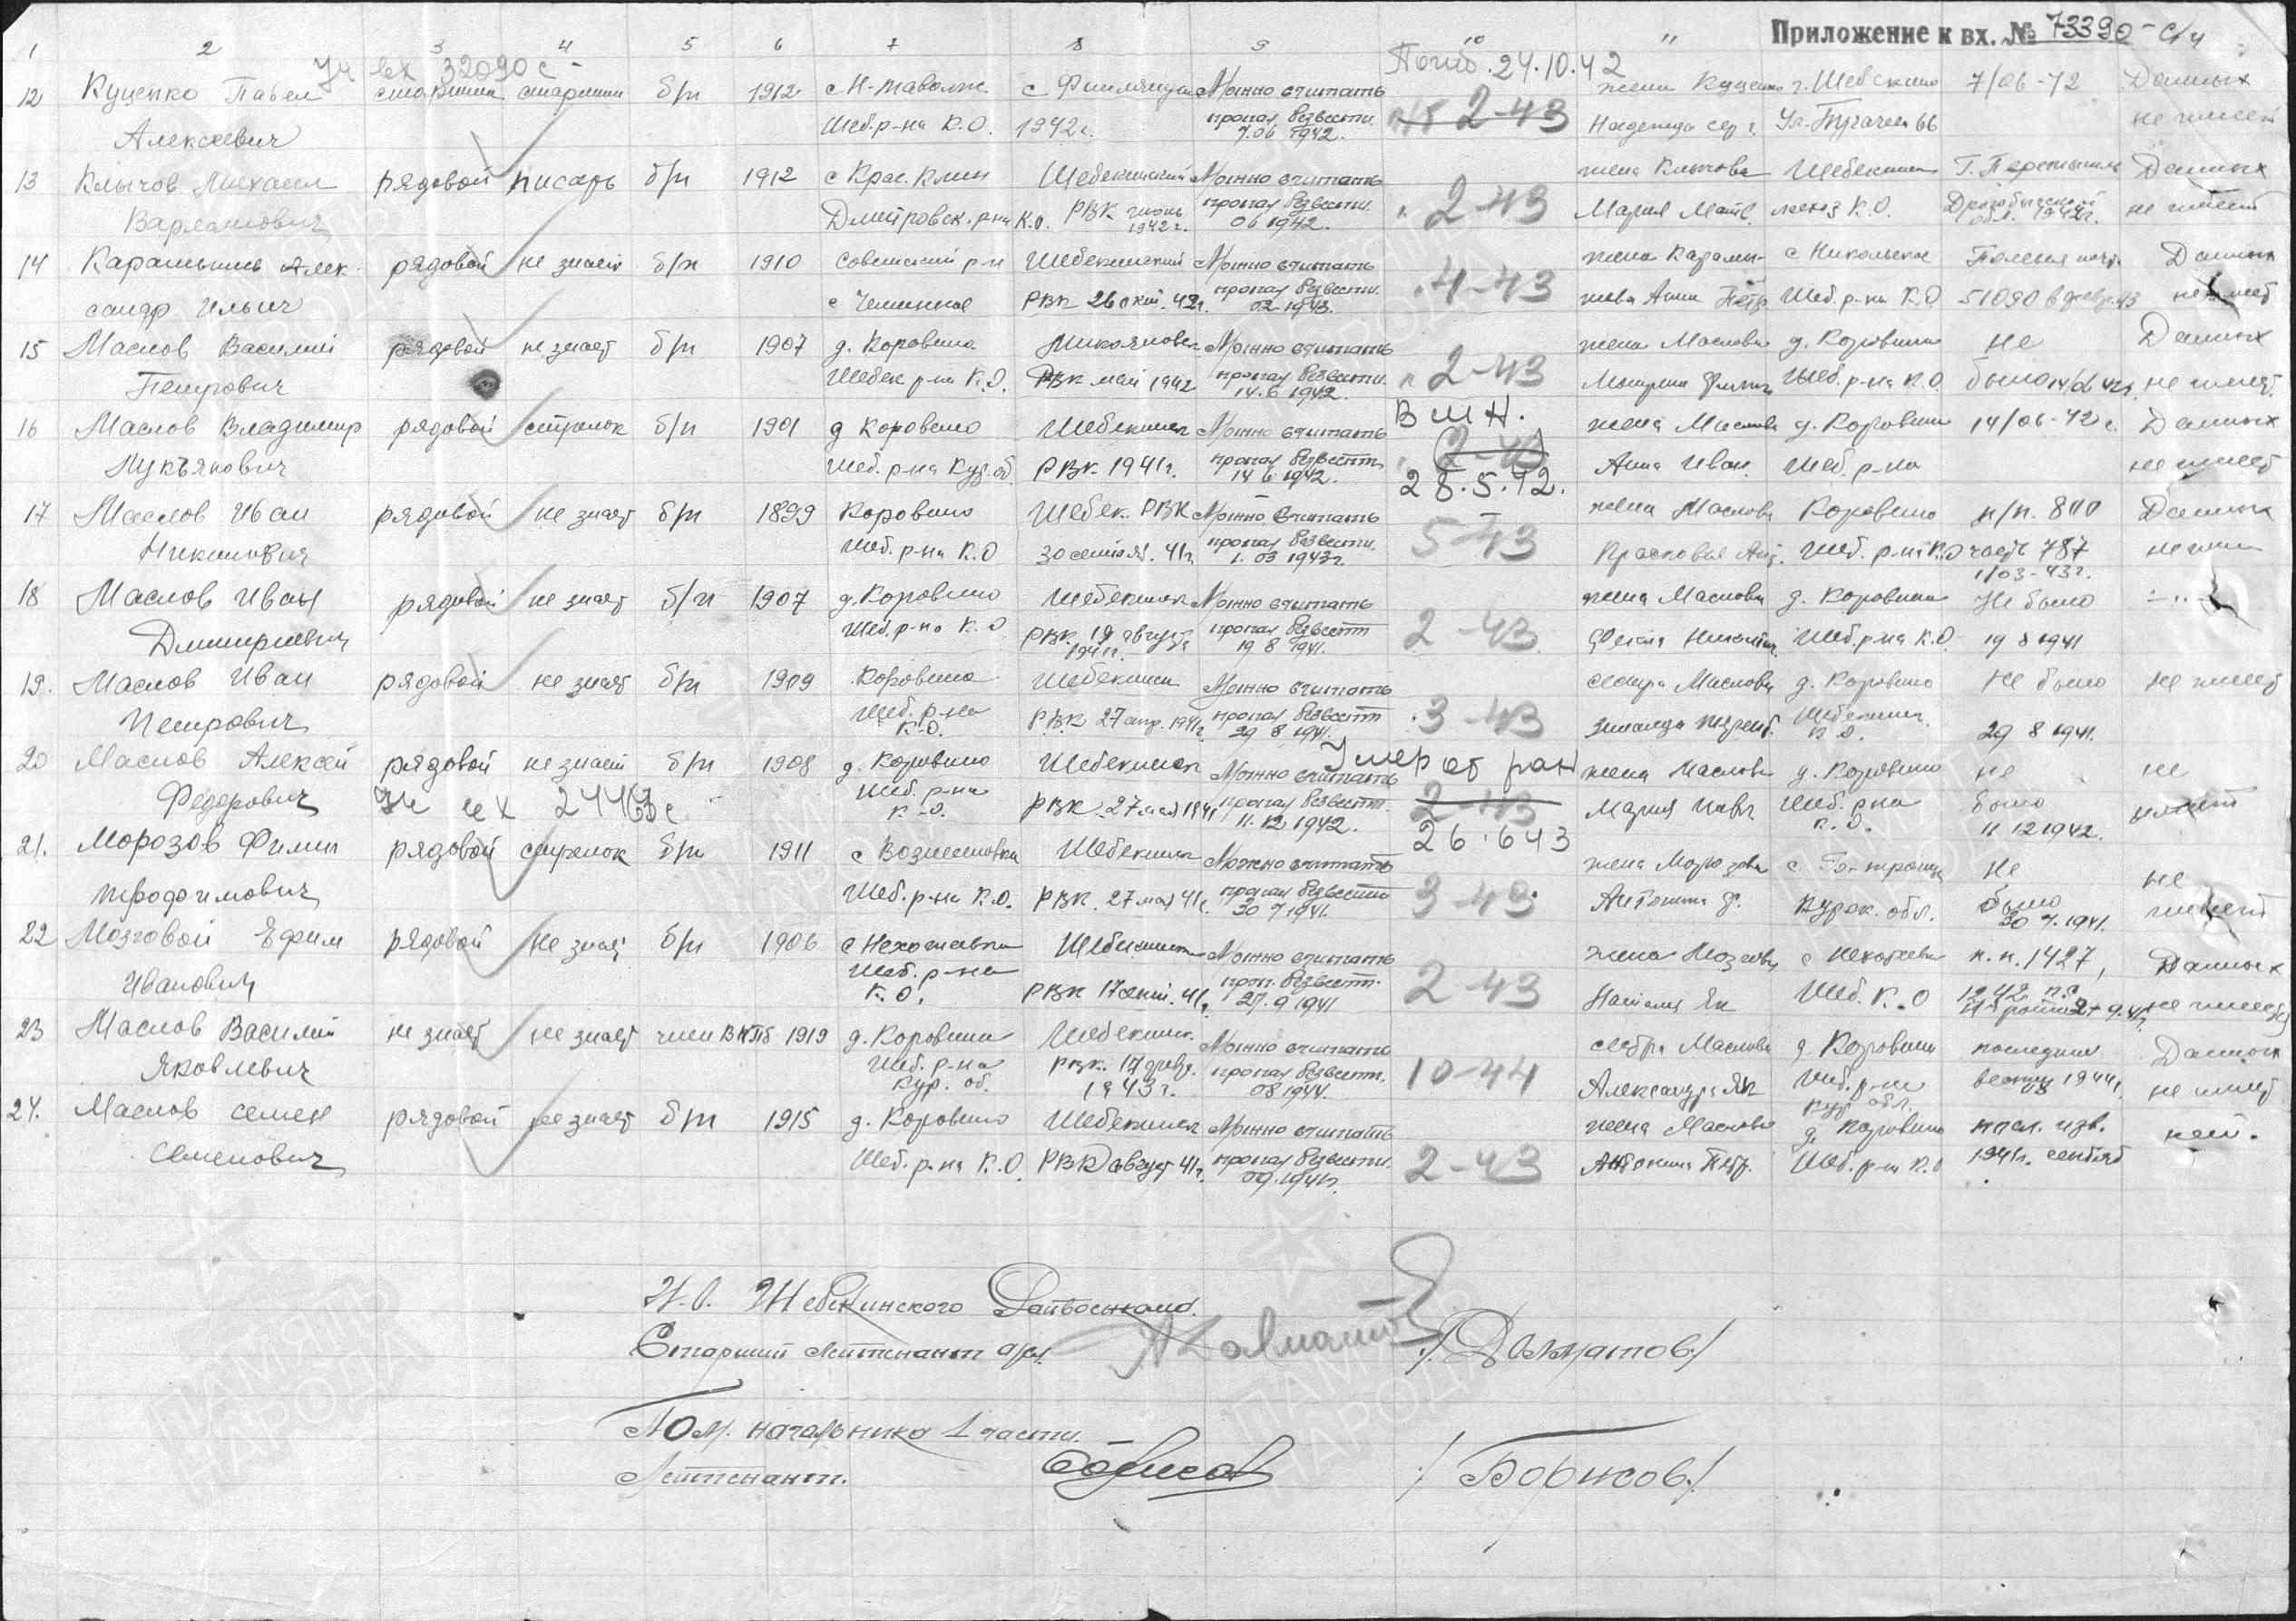 Приложение к вх. № 73390-с/ч
1 2 3 4 5 6 7 8 9 10 11
Уч вх 32090с Погиб. 24.10.42
12 Куценко Павел старшин старшин б/п 1912 с Н-таволж с Можно считать жена Куценко г. Шебекино 7/06-42 Данных
Алексеевич Шеб. р-на К.О. 1942 г. пропал безвести 7.06 1942. 2-43 Надежда Сер 66 не имеет
13 Клычов Михаил рядовой писарь б/п 1912 с Крас. Клин Шебекинский Можно считать жена Клычова Шебекино Г. Перемышль Данных
Варламович Дмитровск. р-на К.О. РВК июнь 1942 г. пропал безвести. 06 1942. 2-43 Мария Матв. К.О. Дрогобычской обл. 1942г. не имеет
14 Карамышев Алек рядовой не знает б/п 1910 Советский р-н Шебекинский Можно считать жена Карамы- с Никольское Полевая почт. Данных
сандр Ильич РВК 26 окт. 42г. пропал безвести. 02 1943. 4-43 шева Анна Петр. Шеб. р-на К.О 51090 феврь 43 не имеет
15 Маслов Василий рядовой не знает б/п 1907 д. Коровино Микояновск Можно считать жена Маслова д. Коровино не Данных
Петрович Шебек р-на К.О. РВК май 1942 пропал безвести. 14.6 1942. 2-43 Шеб. р-на К.О. было 14/06 42г. не имеет.
ВМН.
16 Маслов Владимир рядовой стрелок б/п 1901 д Коровино Шебекинск Можно считать жена Маслова д. Коровино 14/06-42 г. Данных
Лукъянович Шеб. р-на Кур. об. РВК. 1941г. пропал безвести 14 6 1942. 2-43 Анна Иван. Шеб. р-на не имеет
28.5.42.
17 Маслов Иван рядовой не знает б/п 1899 Коровино Шебек. РВК Можно считать жена Маслова Коровино п/п. 800 Данных
Никитович Шеб. р-на К.О 30 сентяб. 41г. пропал безвести. 1. 03 1943г. 5-43 Прасковья Анд. Шеб. р-на К.О часть 787
1/03-43г.
18 Маслов Иван рядовой не знает б/п 1907 д. Коровино Шебекинск Можно считать жена Маслова д. Коровино не было -"-
Дмитриевич Шеб. р-на К.О РВК 19 август 1941г. пропал безвести 19 8 1941. 2-43 Шеб. р-на К.О. 19 8 1941
19. Маслов Иван рядовой не знает б/п 1909 Коровино Шебекинск Можно считать сестра Маслова д. Коровино Не было не имеет
Петрович Шеб. р-на К.О. РВК 27 1941г. пропал безвести 29 8 1941. 3-43 Зинаида Шебекинск. К.О. 29 8 1941.
Умер от ран
20 Маслов Алексей рядовой не знает б/п 1908 д. Коровино Шебекинск Можно считать жена Маслова д. Коровино не не
Федорович Уч вх 24463с Шеб. р-на К.О. РВК. 27 мая 1941 пропал безвести. 11.12 1942. 2-43 Мария Шеб. р-на К.О. было 11 12 1942. имеет
26.643
21. Морозов Филип рядовой стрелок б/п 1911 с Вознесеновка Шебекинск Можно считать жена Морозова с не не
Трофимович Шеб. р-на К.О. РВК. 27 мая 41г. пропал безвести 30 7 1941. 3-43 Антонина Ф. Курск. обл. было 30 7. 1941. имеет
22 Мозговой Ефим рядовой не знает б/п 1906 с Нехотеевка Шебекинск Можно считать жена Мозговая с Нехотеевка п.п. 1427, Данных
Иванович Шеб. р-на К.О. РВК 17 41г. проп. безвести. 27.9 1941 2-43 Наталия Як Шеб. К.О 1242 п.с. не имеет
23 Маслов Василий не знает не знает член ВКПб 1919 д. Коровино Шебекинск. Можно считать сестра Маслова д. Коровино последние Данных
Яковлевич Шеб. р-на Кур. об. РВК. 17 февр. 1943 г. пропал безвести. 08 1944. 10-44 Александра Як Шеб. р-на Кур обл. 1944г. не имеет
24. Маслов Семен рядовой не знает б/п 1915 д. Коровино Шебекинск Можно считать жена Маслова д. Коровино посл. изв. нет.
Семенович Шеб. р-на К.О. РВК август 41г. пропал безвести. 09.1941г. 2-43 Антонина Петр. Шеб. р-н К.О 1941г. сентяб
Шебекинского Райвоенком.
Старший лейтенант а/сл. /Долматов/
Пом. начальника 1 части.
Лейтенант. Борисов /Борисов/
ПАМЯТЬ
НАРОДА